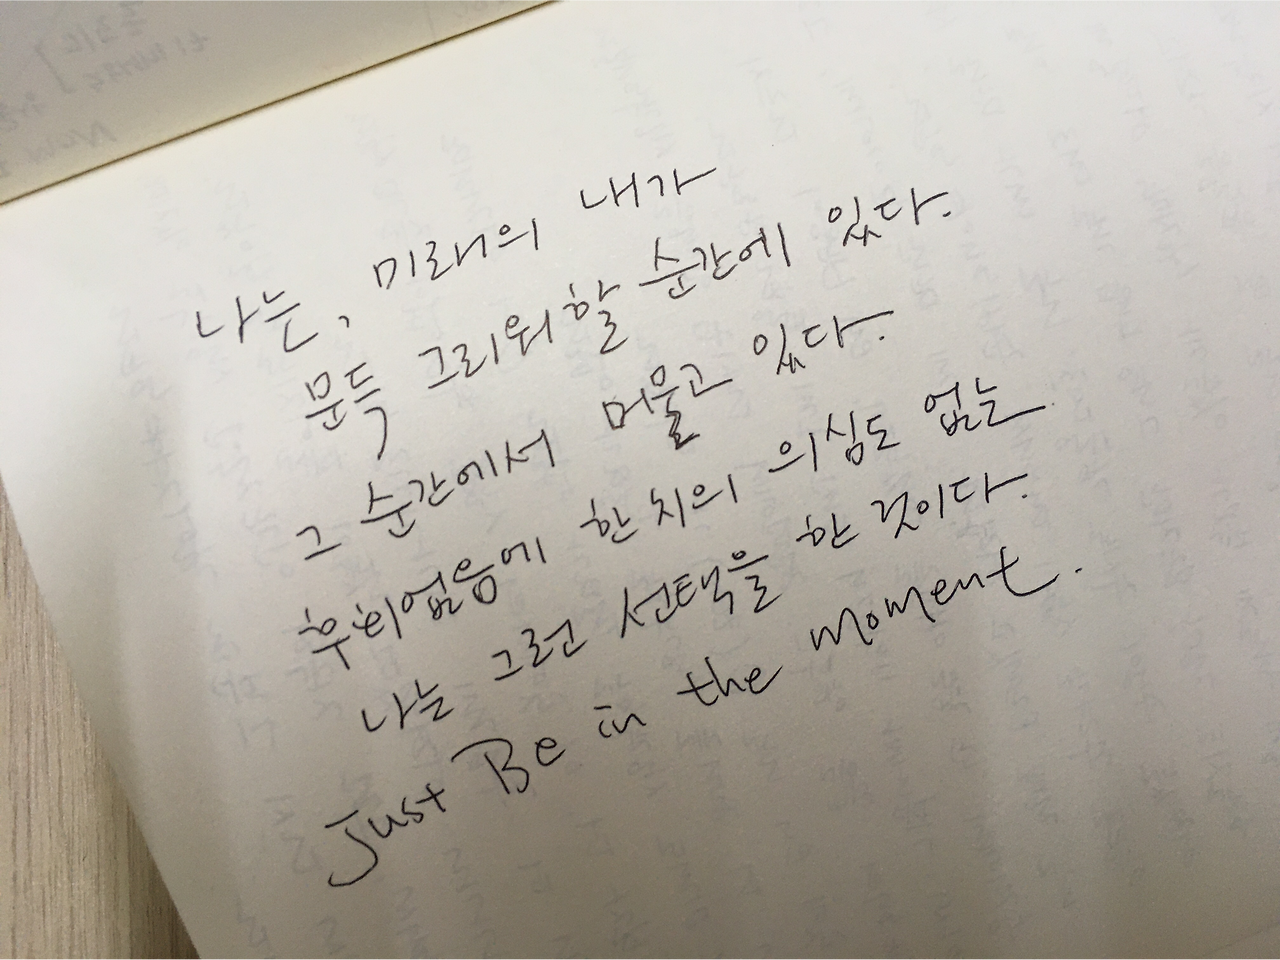 나는, 미래의 내가
문득 그리워할 순간에 있다.
그 순간에서 머물고 있다.
후회없음에 한 치의 의심도 없는
나는 그런 선택을 한 것이다.
Just Be in the moment.